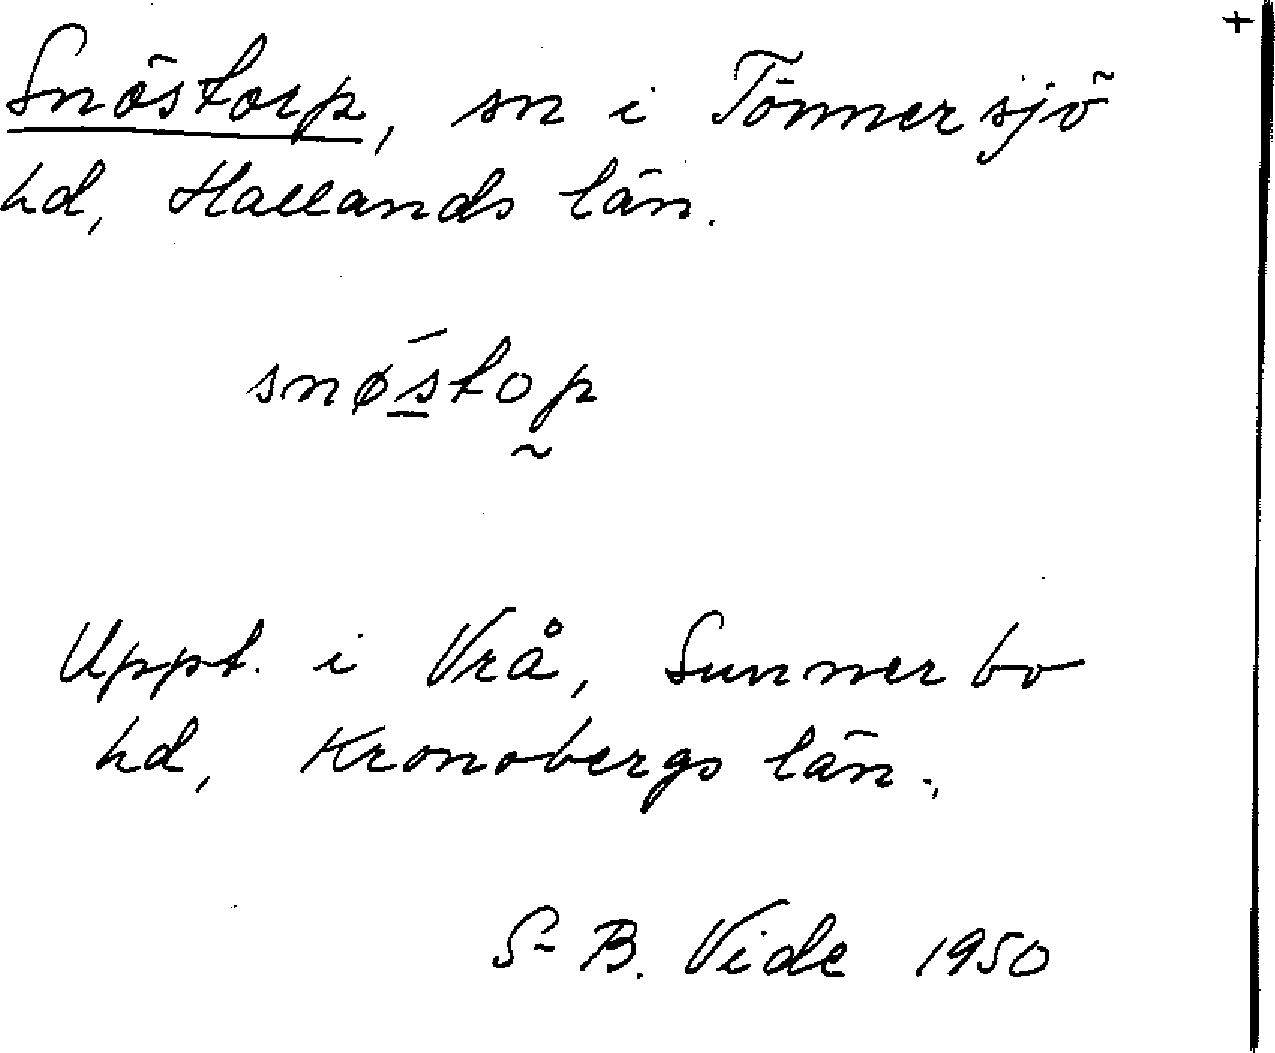 +
Snöstorp, sn i Tönnersjö
hd, Hallands län.
snø´stop
Uppt. i Vrå, Sunnerbo
hd, Kronobergs län.
S-B. Vide 1950